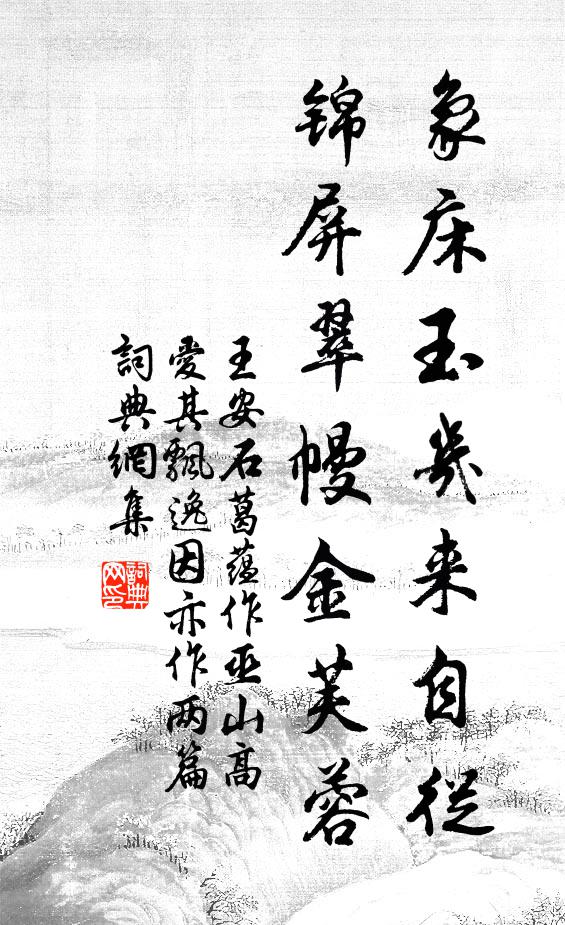 象床玉幾来自従
锦屏翠幔金芙蓉
王安石葛蕴作巫山高
愛其飄逸因亦作两篇
詞典網集
詞典
网印